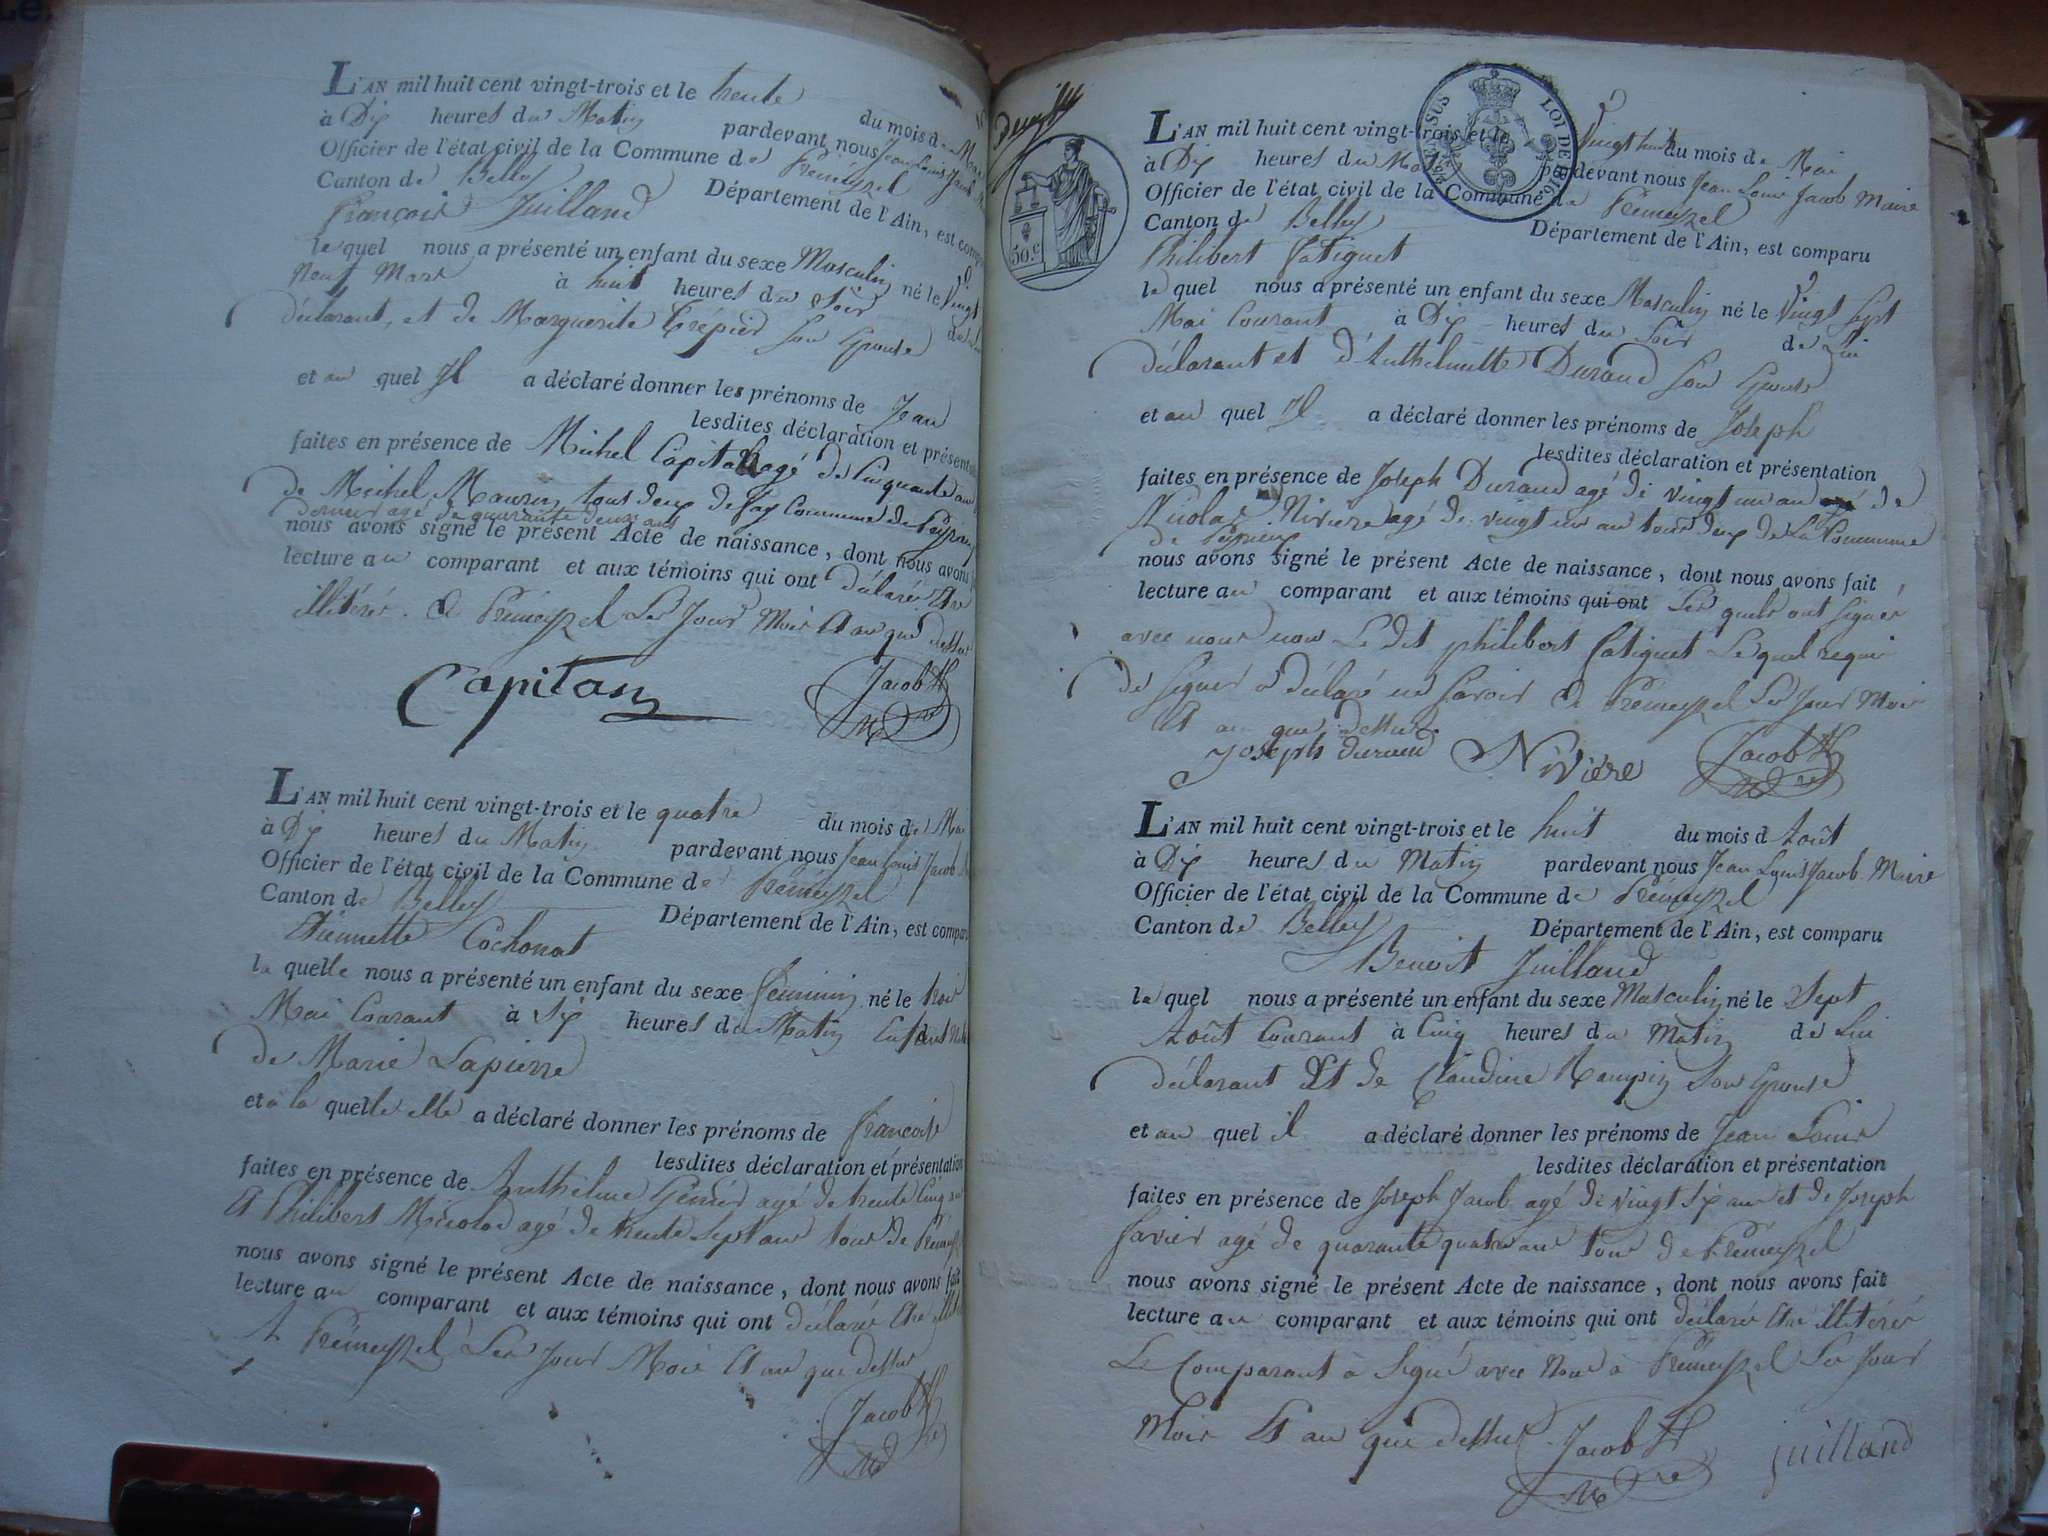 L'AN mil huit cent vingt-trois et le trente du mois de Mars
à Dix heures du Matin pardevant nous Jean Louis Jacob
Officier de l'état civil de la Commune de Prémeyzel
Canton de Belley Département de l'Ain, est comparu
François Juilland
lequel nous a présenté un enfant du sexe Masculin né le Vingt
Neuf Mars à huit heures du Soir de Lui
déclarant, et de Marguerite Trépier Son Epouse
et au quel Il a déclaré donner les prénoms de Jean
lesdites déclaration et présentation
faites en présence de Michel Capitan agé de Cinquante ans
de Michel Maurin tous deux de fay Commune de Peyrieu
dernier agé de quarante deux ans
nous avons signé le présent Acte de naissance, dont nous avons
lecture au comparant et aux témoins qui ont déclaré Etre
illitérés. A Prémeyzel Les Jour Mois Et an que dessus
Capitan Jacob
Mre
L'AN mil huit cent vingt-trois et le quatre du mois de Mai
à Dix heures du Matin pardevant nous Jean Louis Jacob
Officier de l'état civil de la Commune de Prémeyzel
Canton de Belley Département de l'Ain, est comparu
Etiennette Cochonat
la quelle nous a présenté un enfant du sexe féminin né le trois
Mai Courant à Six heures du Matin Enfant
de Marie Lapierre
et à la quelle elle a déclaré donner les prénoms de françoise
lesdites déclaration et présentation
faites en présence de Anthelme agé de trente Cinq ans
Et Philibert agé de trente Sept ans tous de Prémeyzel
nous avons signé le présent Acte de naissance, dont nous avons fait
lecture au comparant et aux témoins qui ont déclaré Etre
A Prémeyzel Les Jour Mois Et an que dessus
Jacob
Mre
50.c
LOI DE 1816
L'AN mil huit cent vingt-trois et le Vingt huit du mois de Mai
à Dix heures du Matin pardevant nous Jean Louis Jacob Maire
Officier de l'état civil de la Commune de Prémeyzel
Canton de Belley Département de l'Ain, est comparu
Philibert Catiguet
le quel nous a présenté un enfant du sexe Masculin né le Vingt Sept
Mai Courant à Dix heures du Soir de Lui
déclarant et d'Anthelmette Durand Son Epouse
et au quel Il a déclaré donner les prénoms de Joseph
lesdites déclaration et présentation
faites en présence de Joseph Durand agé de vingt un an de
Nicolas Nivière agé de vingt un an tous deux de La Commune
de Peyrieu
nous avons signé le présent Acte de naissance, dont nous avons fait
lecture au comparant et aux témoins qui ont Les quels ont Signé
avec nous non Le dit philibert Catiguet Le quel requis
de Signer a déclaré ne Savoir A Prémeyzel Les Jour Mois
Et an que dessus.
Joseph durand Nivière Jacob
Mre
L'AN mil huit cent vingt-trois et le huit du mois d Août
à Dix heures du Matin pardevant nous Jean Louis Jacob Maire
Officier de l'état civil de la Commune de Prémeyzel
Canton de Belley Département de l'Ain, est comparu
Benoit Juilland
le quel nous a présenté un enfant du sexe Masculin né le Sept
Août Courant à Cinq heures du Matin de Lui
déclarant Et de Claudine Son Epouse
et au quel il a déclaré donner les prénoms de Jean Louis
lesdites déclaration et présentation
faites en présence de Joseph Jacob agé de vingt Six ans et de Joseph
Javier agé de quarante quatre ans tous de Prémeyzel
nous avons signé le présent Acte de naissance, dont nous avons fait
lecture au comparant et aux témoins qui ont déclaré Etre illitérés
Le Comparant a Signé avec Nous à Prémeyzel Les Jour
Mois Et an que dessus Jacob juilland
Mre